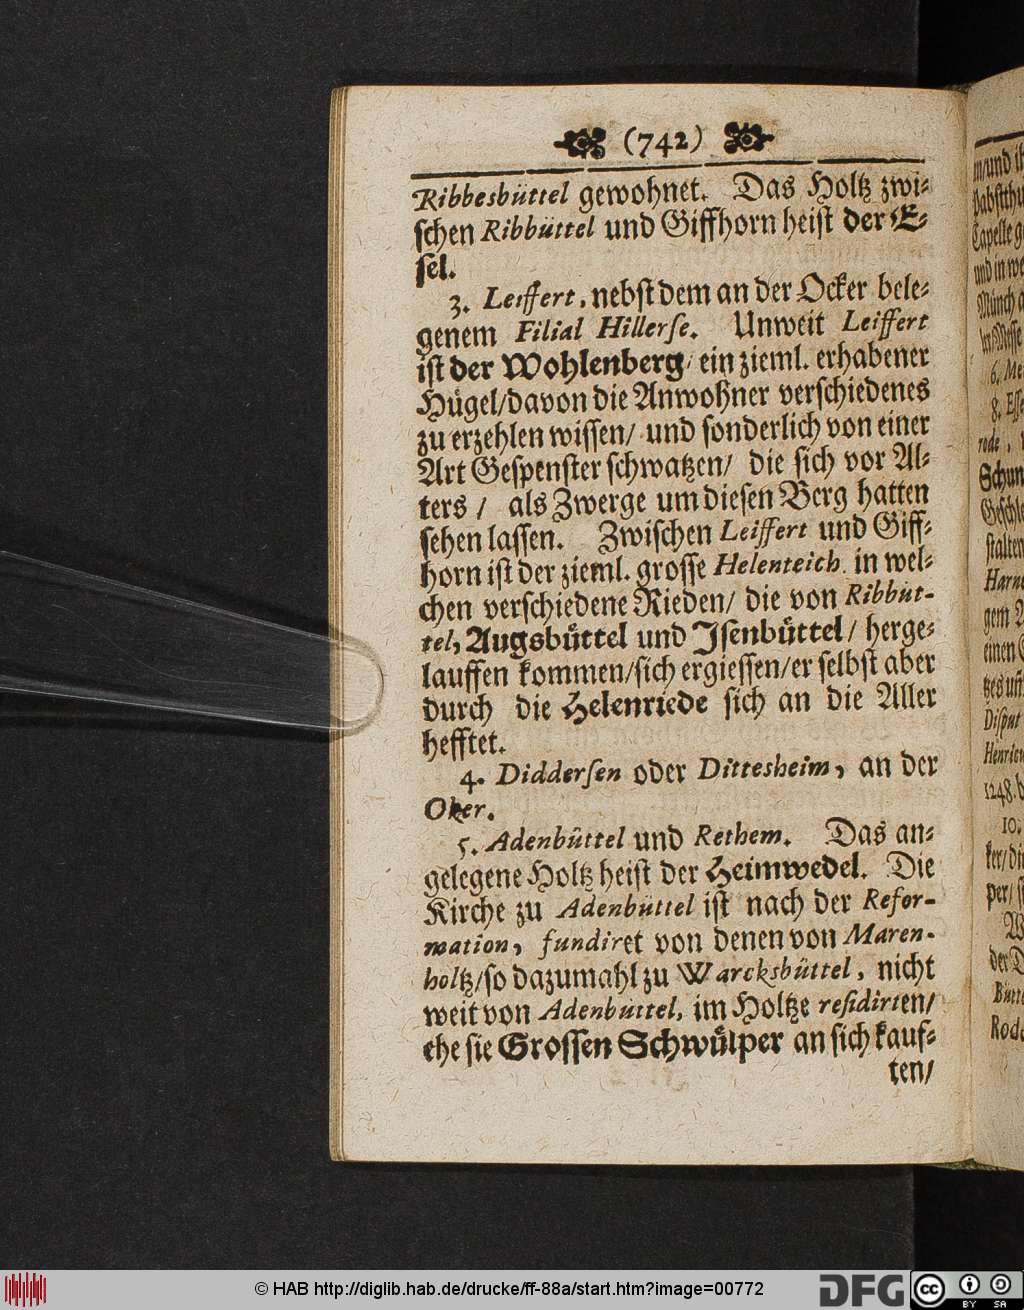 (742)
Ribbesbüttel gewohnet. Das Holtz zwi⸗
schen Ribbüttel und Giffhorn heist der E⸗
sel.
3. Leiffert, nebst dem an der Ocker bele⸗
genem Filial Hillerse. Unweit Leiffert
ist der Wohlenberg/ ein zieml. erhabener
Hügel/davon die Anwohner verschiedenes
zu erzehlen wissen/ und sonderlich von einer
Art Gespenster schwatzen/ die sich vor Al⸗
ters / als Zwerge um diesen Berg hatten
sehen lassen. Zwischen Leiffert und Giff⸗
horn ist der zieml. grosse Helenteich. in wel⸗
chen verschiedene Rieden/ die von Ribbut-
tel, Augsbüttel und Isenbüttel/ herge⸗
lauffen kommen/sich ergiessen/er selbst aber
durch die Helenriede sich an die Aller
hefftet.
4. Diddersen oder Dittesheim, an der
Oker.
5. Adenbüttel und Rethem. Das an⸗
gelegene Holtz heist der Heimwedel. Die
Kirche zu Adenbüttel ist nach der Refor-
mation, fundiret von denen von Maren-
holtz/so dazumahl zu Warcksbüttel, nicht
weit von Adenbüttel, im Holtze residirten/
ehe sie Grossen Schwülper an sich kauf⸗
ten/
in/und ih
Capelle g
und in we
Münch a
6. Me
8. Esse
rode,
Schun
Geschle
stalten
gem A
einen
Disput
Henricu
1248. d
10.
ker/di
per/ s
W
der D
Bütte
Rode
© HAB http://diglib.hab.de/drucke/ff-88a/start.htm?image=00772
DFG
cc
BY SA